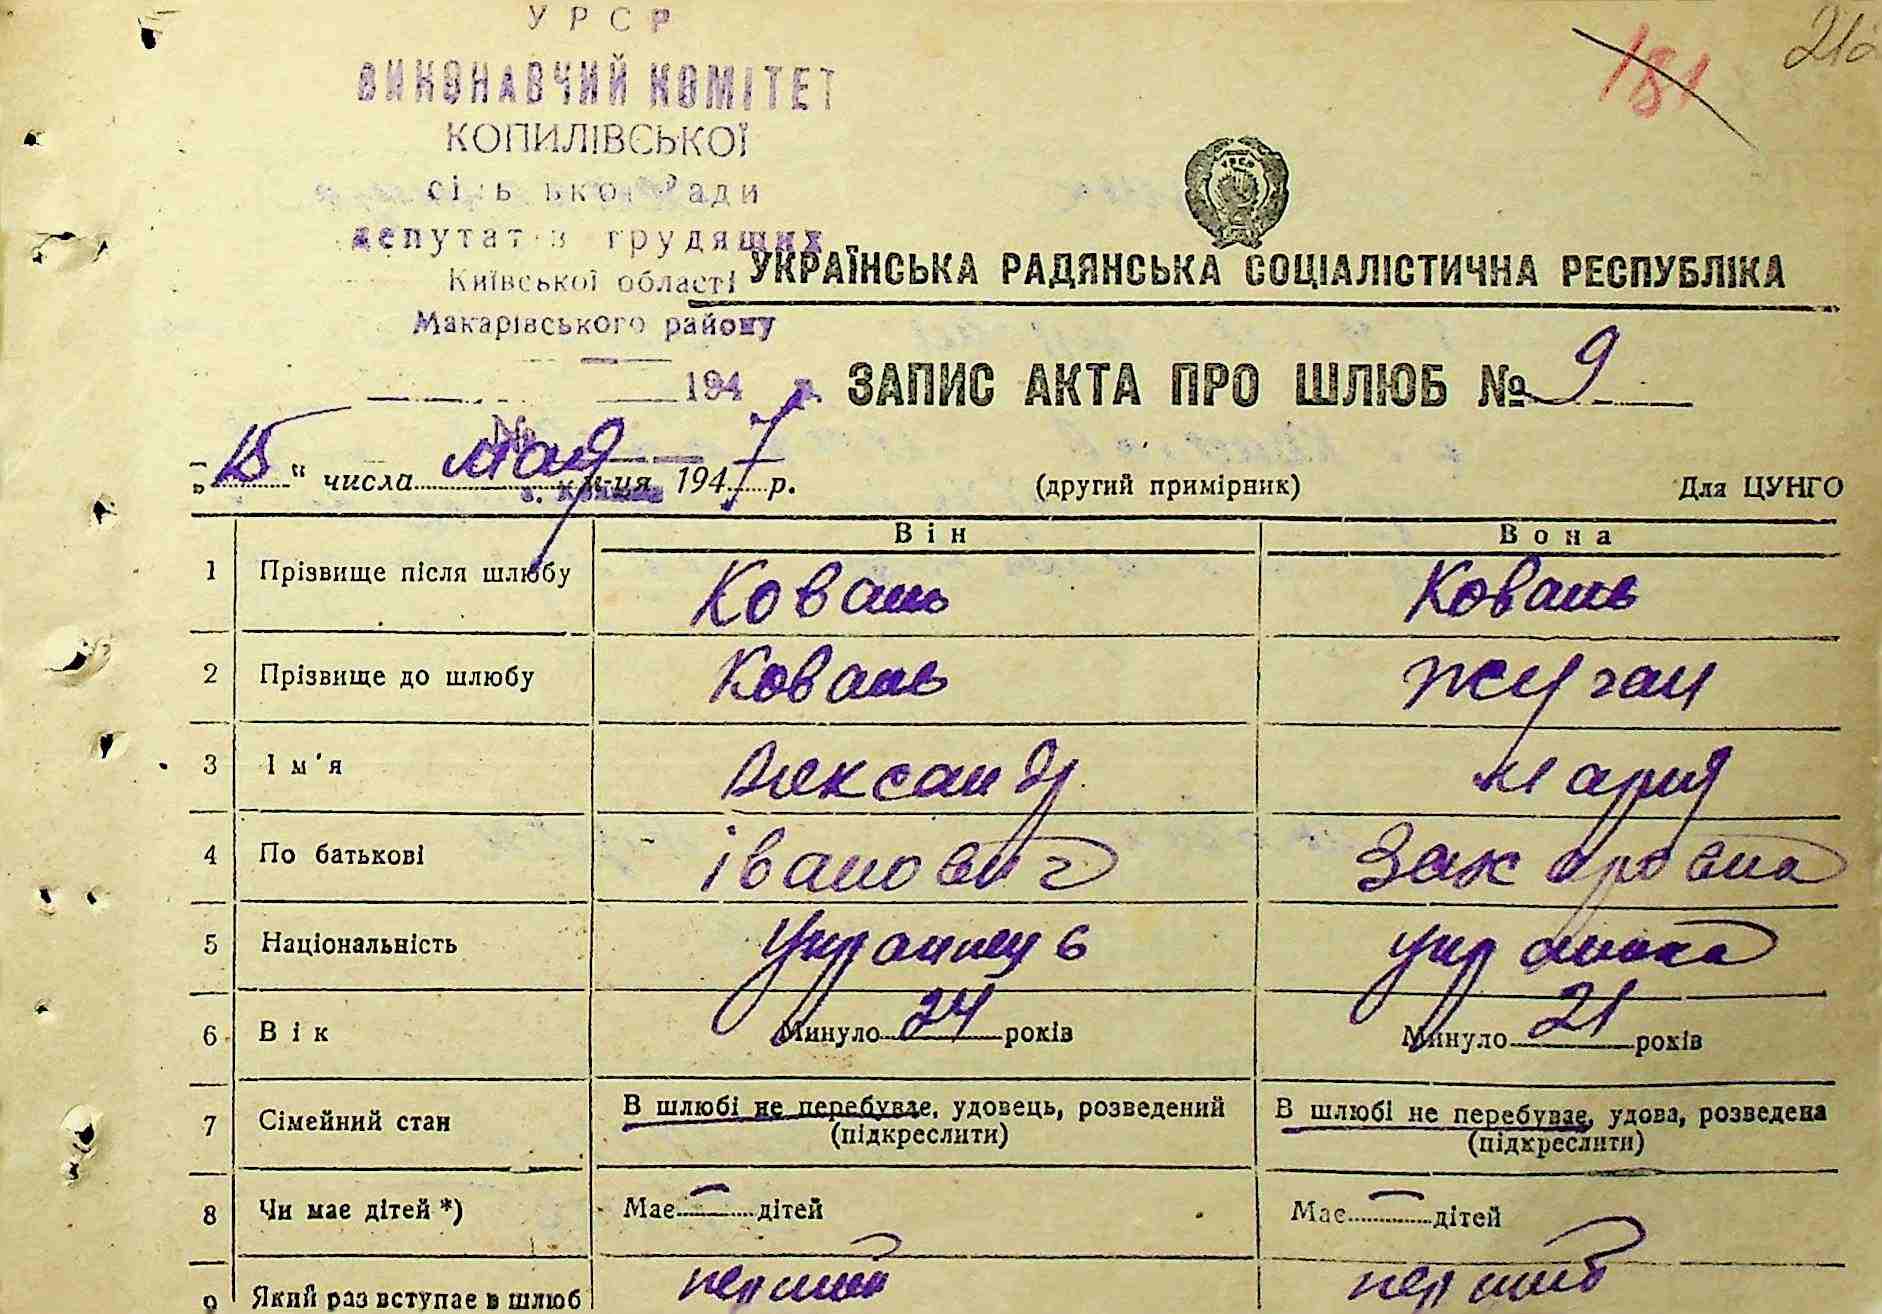 212
181
УРСР
ВИКОНАВЧИЙ КОМІТЕТ
КОПИЛІВСЬКОЇ
сільської Ради
депутатів трудящих
Київської області
Макарівського району
194 р.
№
УРСР
УКРАЇНСЬКА РАДЯНСЬКА СОЦІАЛІСТИЧНА РЕСПУБЛІКА
ЗАПИС АКТА ПРО ШЛЮБ № 9
„15“ числа мая м-ця 1947 р. (другий примірник) Для ЦУНГО
Він Вона
1 Прізвище після шлюбу Коваль Коваль
2 Прізвище до шлюбу Коваль Жуган
3 Ім'я Александр Мария
4 По батькові Іванович Захаровна
5 Національність Украинець украинка
6 Вік Минуло 24 років Минуло 21 років
7 Сімейний стан В шлюбі не перебуває, удовець, розведений (підкреслити) В шлюбі не перебуває, удова, розведена (підкреслити)
8 Чи має дітей *) Має — дітей Має — дітей
9 Який раз вступає в шлюб перший перший